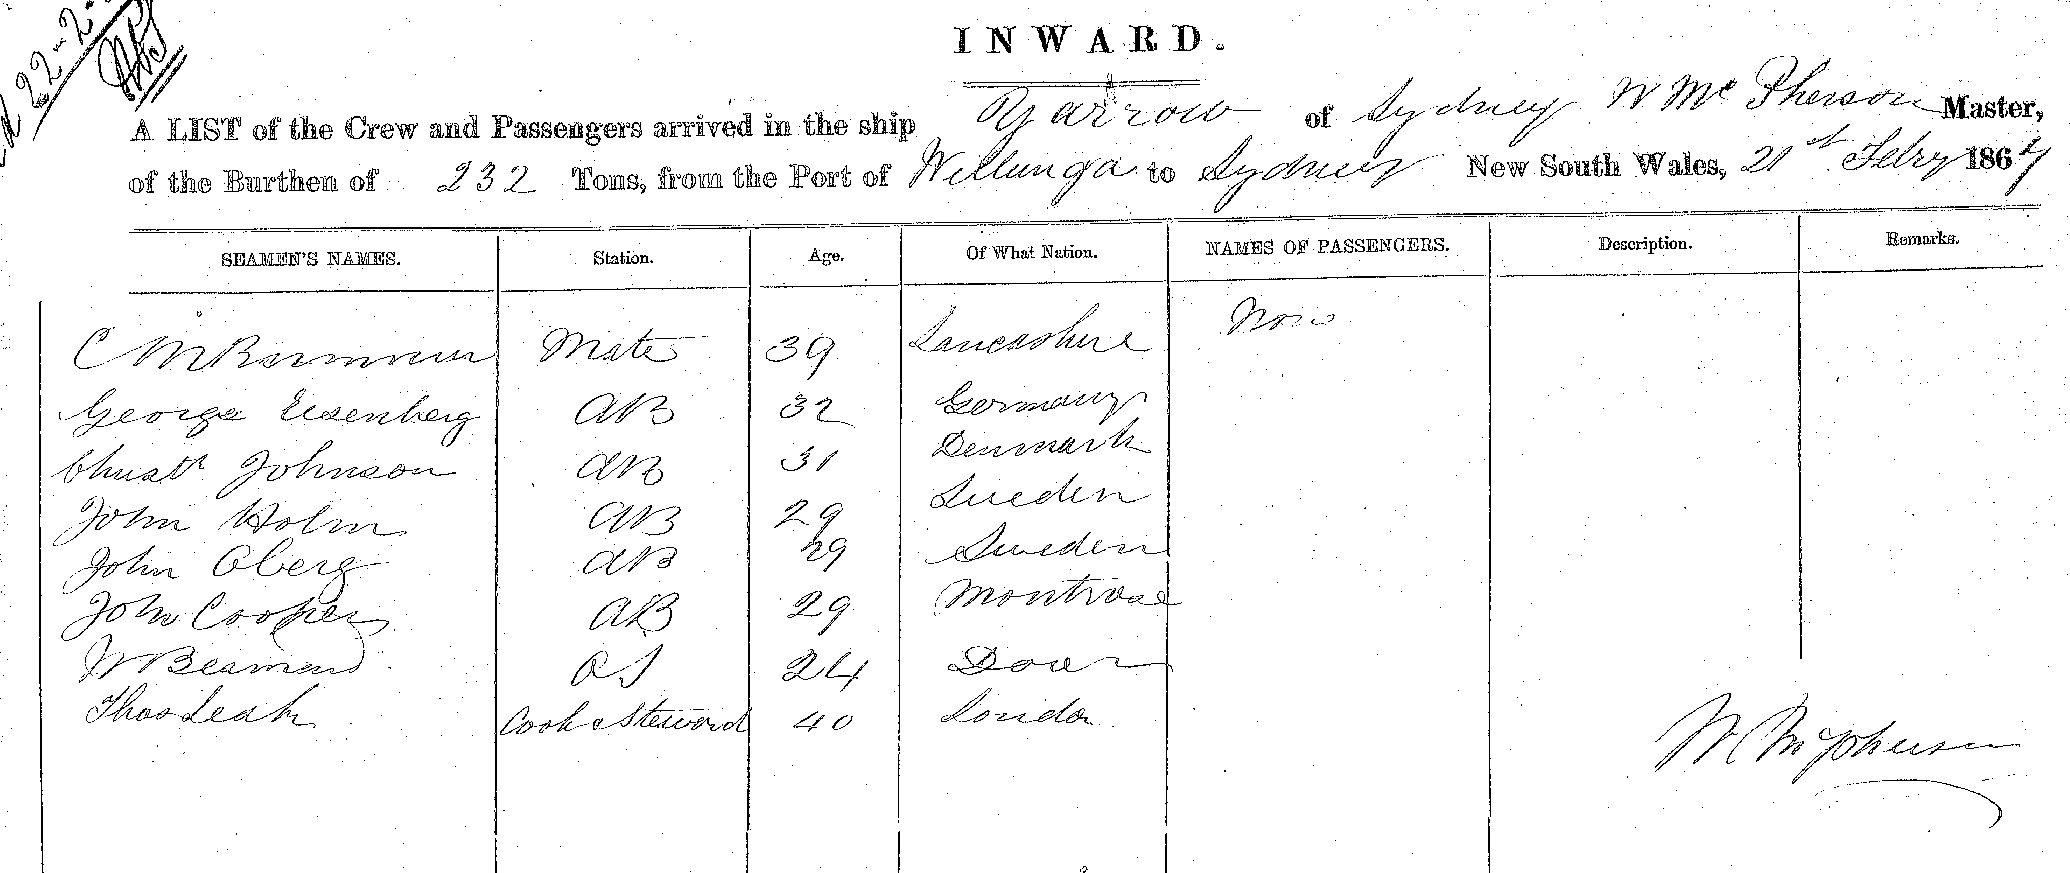 22-2
INWARD.
A LIST of the Crew and Passengers arrived in the ship Yarrow of Sydney W McPherson Master,
of the Burthen of 232 Tons, from the Port of Willunga to Sydney New South Wales, 21st Febry 1867
SEAMEN'S NAMES. Station. Age. Of What Nation. NAMES OF PASSENGERS. Description. Remarks.
C Mate 39 Lancashire None
George Eisenberg AB 32 Germany
Christr Johnson AB 31 Denmark
John Holm AB 29 Sweden
John Oberg AB 29 Sweden
John Cooper AB 29 Montrose
W Beamand OS 24
Thos Leah Cook & Steward 40 London
W McPherson